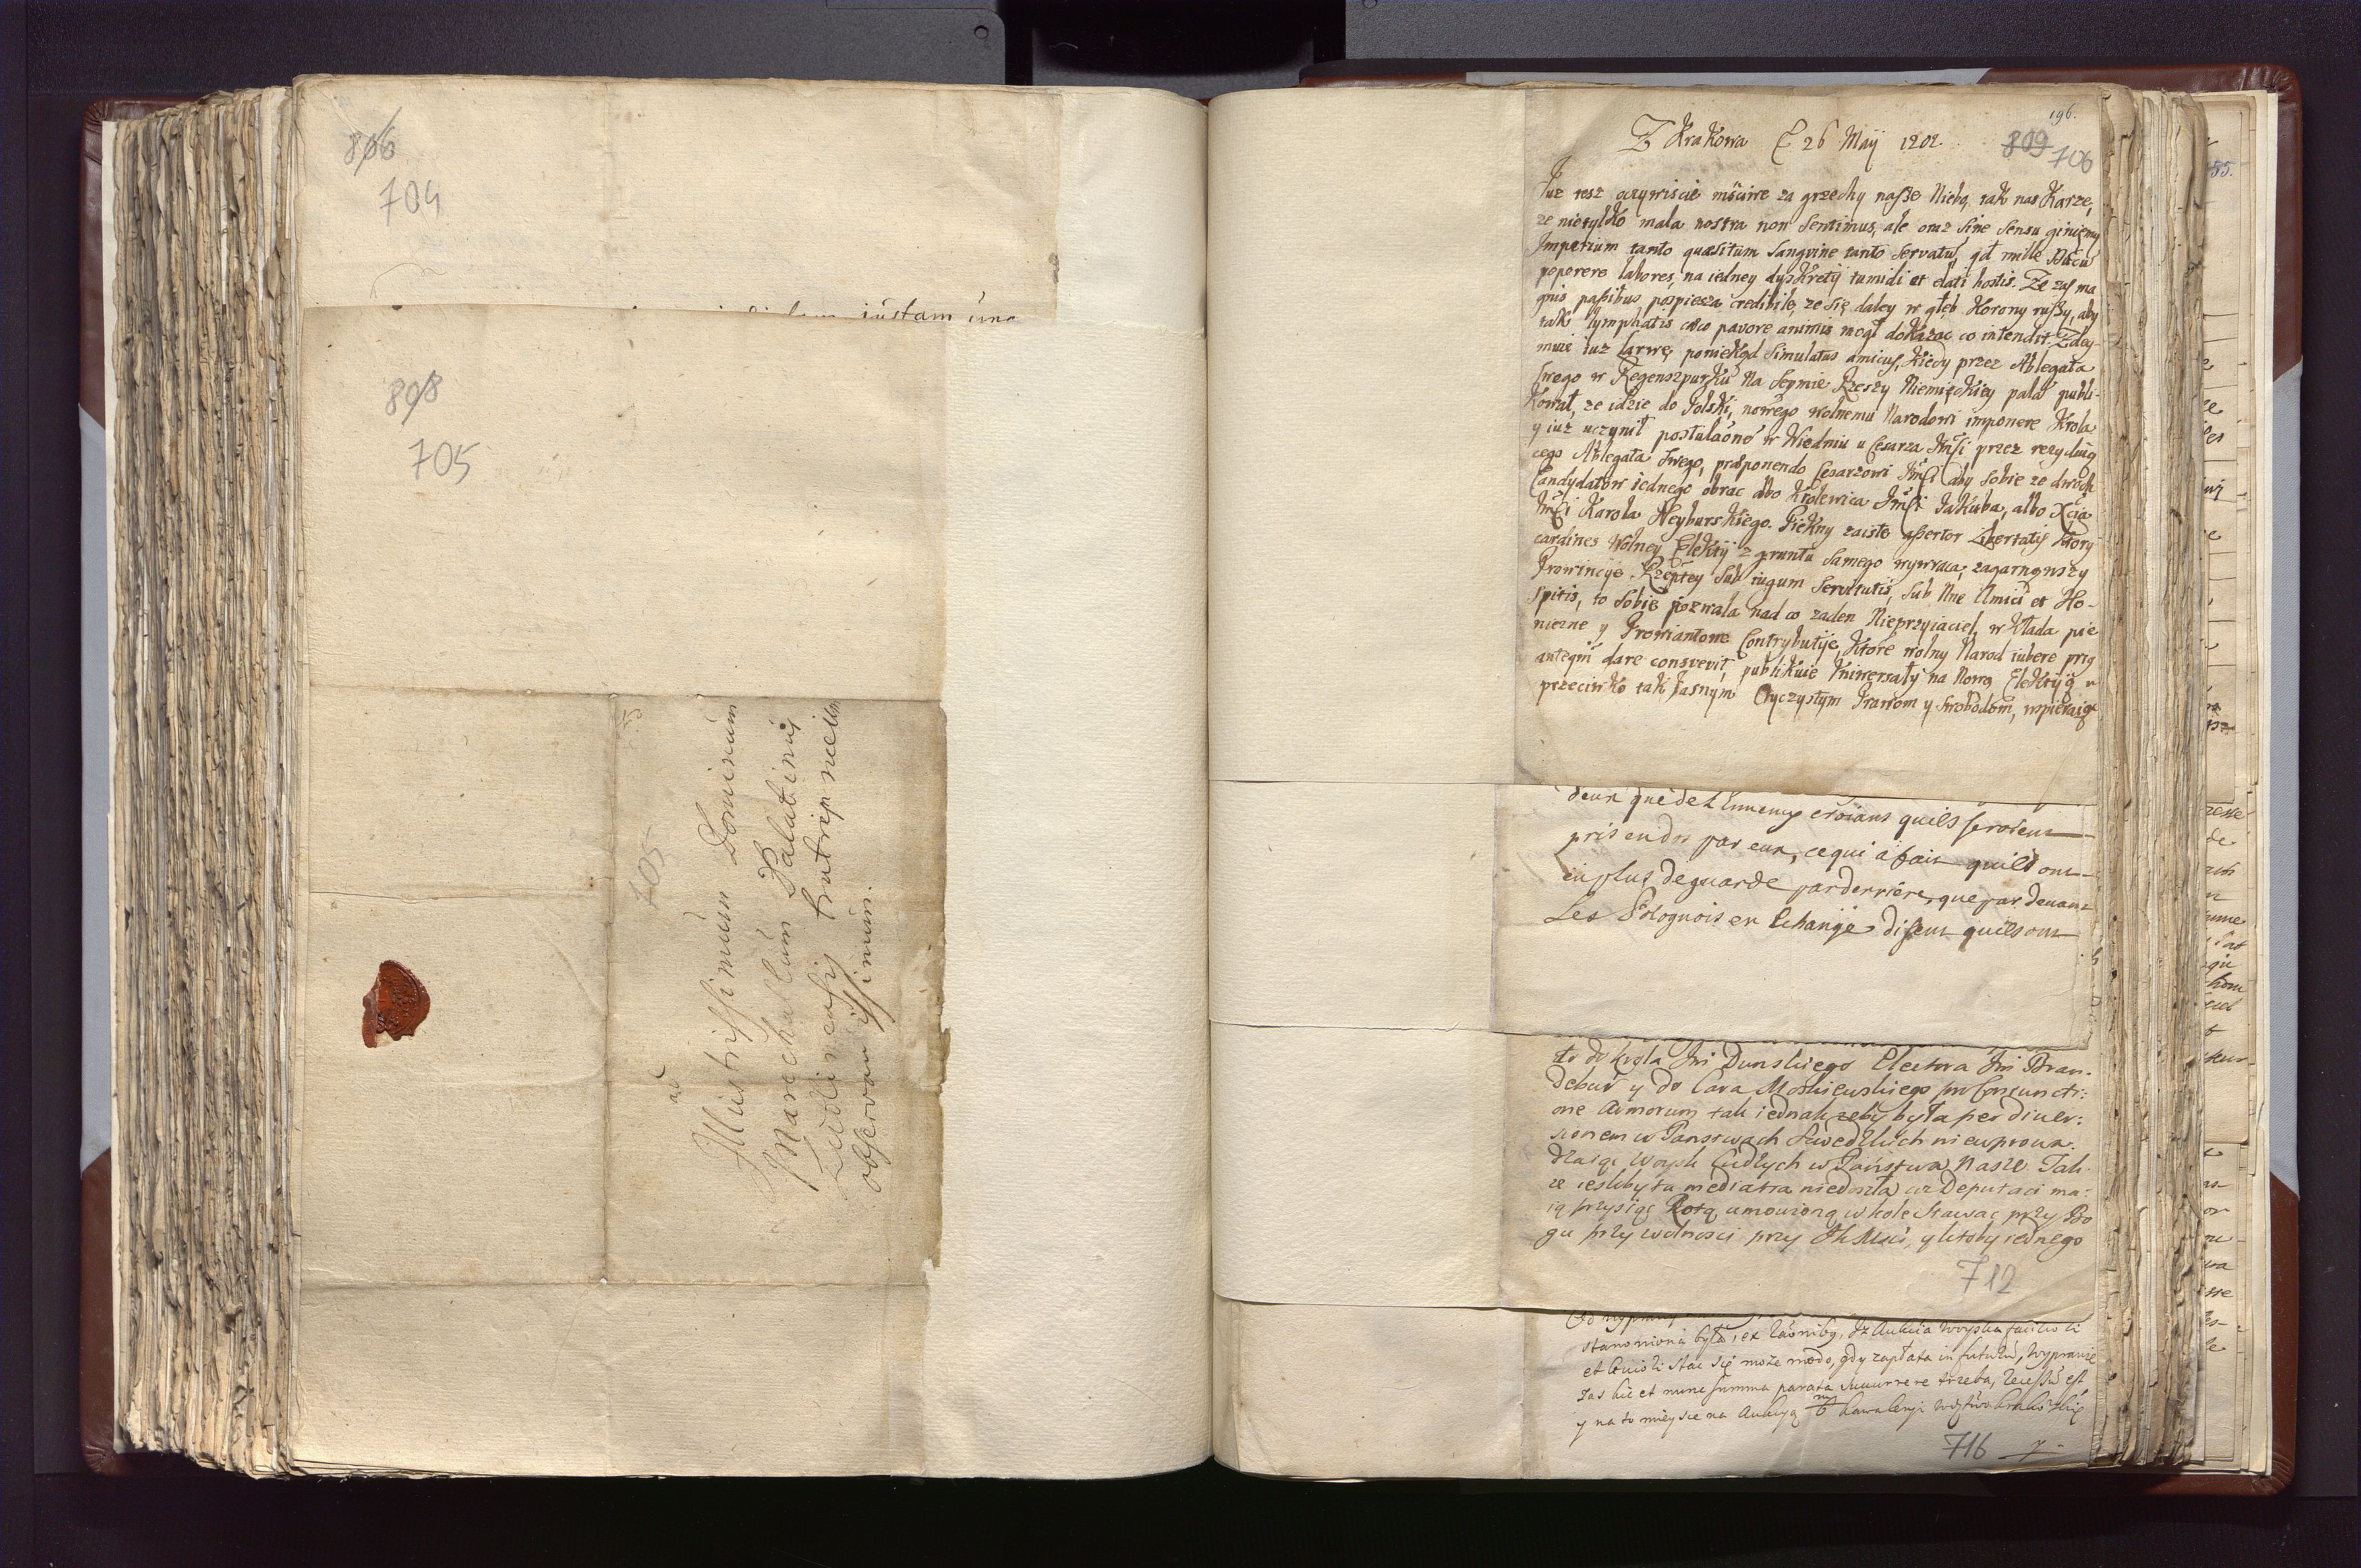 806
704
iustam
808
705
705
ad
Illustrissimum Dominum
Marechallum Palatinus
observandissimum.
196.
Z Krakowa d 26 Maij 1202.
809 706
Iuz tesz oczywiscie msciwe za grzechy nasze Niebo, tak nas Karze,
ze nietylko mala nostra non Sentimus, ale oraz Sine Sensu giniemy
Imperium tanto quæsitum Sangvine tanto Servatu, qd mille Ducu
peperere labores, na iedney dyskretij tumidi et elati hostis. Ze zas ma
gnis passibus pospiesza credibile, ze się daley w głęb Korony ruszy, aby
tak lymphatis cæco pavore animis mogł dokazac co intendit. Zdey
muie iuz larwę poniekąd Simulatus amicus, Kiedy przez Ablegata
swego w Regenszpurku na Seymie Rzeszy Niemieckiey palā publi-
kował, ze idzie do Polski, nowego wolnemu Narodowi imponere Krola
y iuz uczynił postulaōnē w Wiedniu u Cesarza Jmsi przez rezyduią
cego Ablegata swego, proponendo Cesarzowi Jmsi aby sobie ze dwoch
Candydatow iednego obrac albo Krolewica Jmsi Jakuba, albo Xcia
Jmsi Karola Neyburskiego. Piekny zaiste assertor Libertatis ktory
cardines Wolney Elekcij z gruntu samego wywraca, zagarnąwszy
Prowincije Rzeptey Sub iugum Servitutis, Sub Nne Amici et Ho-
spitis, to sobie pozwala nad co zaden Nieprzyiaciel, wkłada pie
niezne y Prowiantowe Contrybutije, ktore wolny Narod iubere prią
anteqm dare consvevit, publikuie Vniwersały na Nową Elekcyią
przeciwko tak Jasnym Oyczystym Prawom y swobodom, wspieraiąc
deux que de L'Ennemy croians quils seroient
pris en dos par eux, ce qui a fait quils ont
eu plus de guarde par derriere, que par devant
Les Polognois en Echange disent quils ont
to do krola Jmi Dunskiego Electora Jmi Bran-
debur y do Cara Moskiewskiego pro Conjuncti:
one Armorum tak iednak zeby była per diver:
sionem w Panstwach Szwedzkich nie wprowa
dzaiąc Woysk Cudzych w Państwa nasze. Tak
ze iesliby ta mediatia niedoszła ciz Deputaci ma:
ią przysięgę Rotą umowioną w kole stawac przy Bo
gu przy wolnosci przy JKMsci, y ktoby iednego
712
stanowiona była, ex Auktia Woyska facili
stac się może modo, gdy zapłata in futurū, Wyprawie
zas hic et nunc summa parata succurrere trzeba, est
y na to mieysce na Aukcyą
716